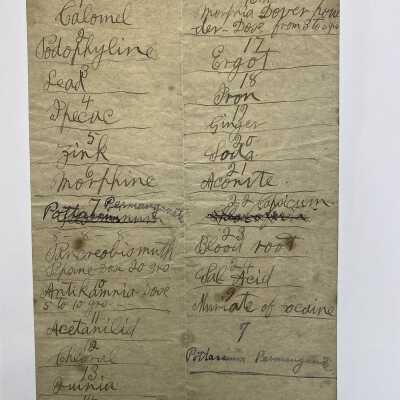 Calomel
2
Podophyline
3
Lead
4
Ipecac
5
Zink
6
Morphine
7 Permanganate
8
Pancreobismuth
Pepsine Dose 20 grs
Antikamnia - Dove
5 to 10 grs
11
Acetanilid
12
Chloral
13
Quinia
14
Morphia Dover pow
der - Dove from 3 to
17
Ergot
18
Iron
19
Ginger
20
Soda
21
Aconite
22 Capicum
23
Blood root
24
Sal Acid
9
Muriate of cocaine
7
Pottassium Permanganate